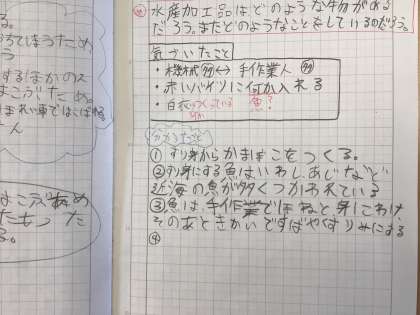 水産加工品はどのような物がある
だろう。またどのようなことをしているのだろう。
気づいたこと
・機械 ↔ 手作業人
・赤いバケツに何か入れる
・白衣 魚?
わかったこと
① すり身からかまぼこをつくる。
②すり身にする魚はいわし、あじなど
近海の魚が多くつかわれている
③魚は、手作業でほねと身にわけ、
そのあときかいですばやくすりみにする
④
ちてしまうため
するほかの人
まこぶため。
まれい車ではこば
ん
はこぶため
たもった
る。